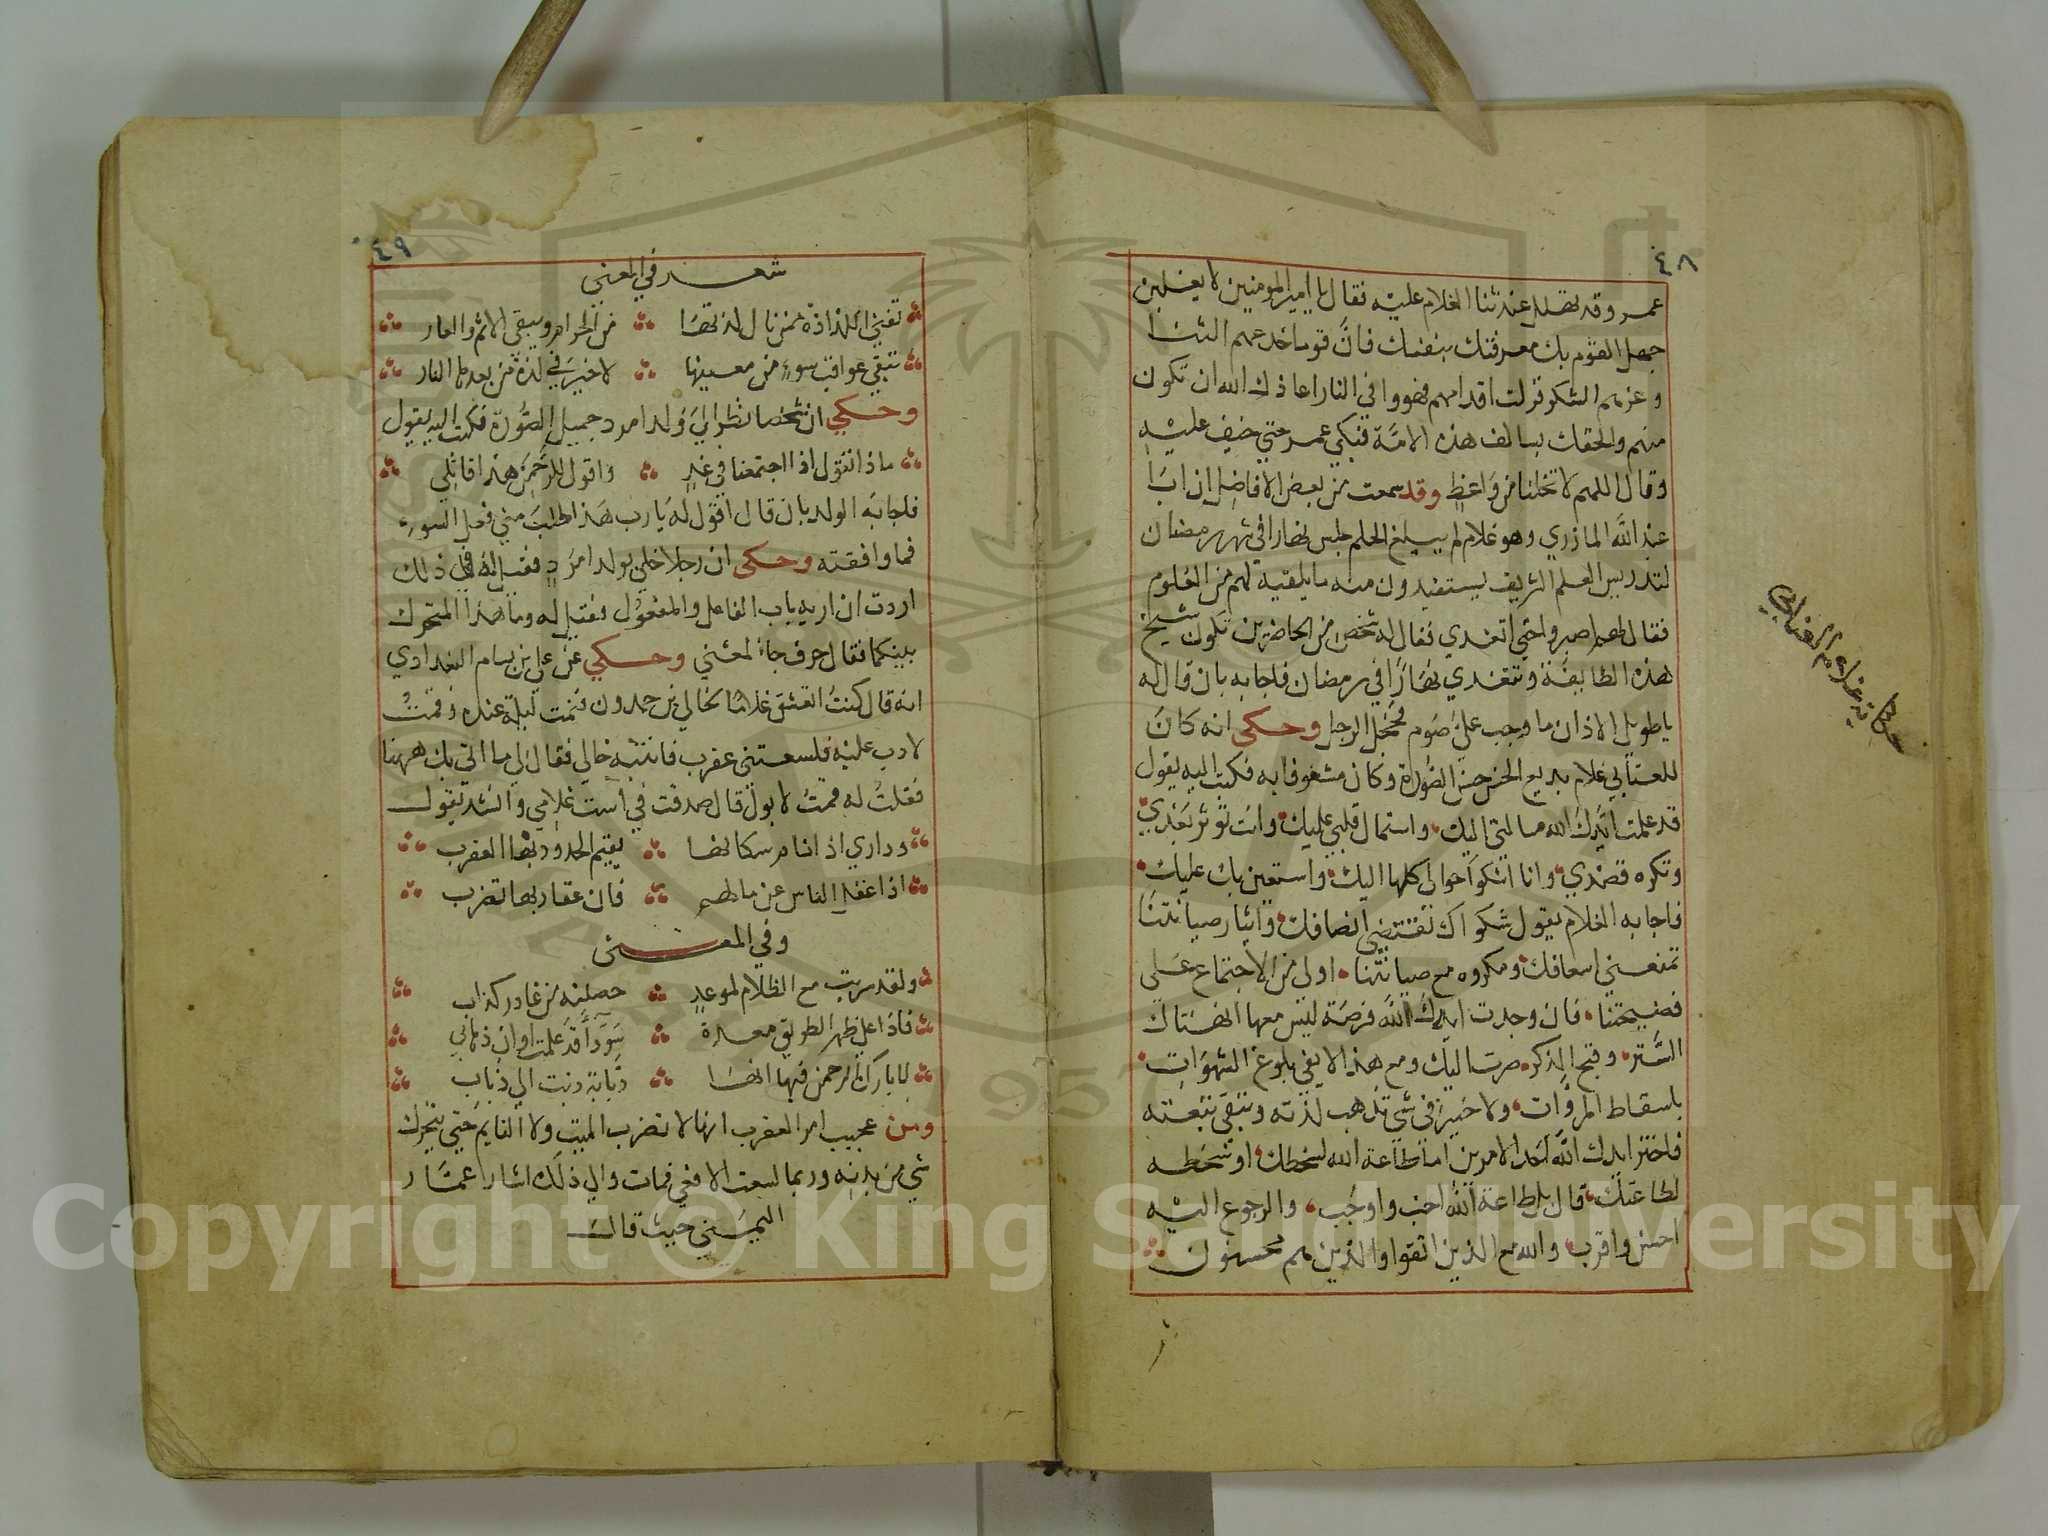 ٤٨
عمر وقد تهلل عند ثنا الغلام عليه فقال يا امير المومنين لا يغلبن
جهل القوم بك معرفتك بنفسك فان قوما خدعهم الثنا
وغرهم الشكر فزلت اقدامهم فهووا في النار اعاذك الله ان تكون
منهم والحقك بسالف هذه الامة فبكي عمر حتي خيف عليه
وقال اللهم لا تخلنا من واعظ وقد سمعت من بعض الافاضل ان ابا
عبد الله المازري وهو غلام لم يبلغ الحلم جلس نهارا في شهر رمضان
لتدريس العلم الشريف يستفيدون منه ما يلقيه لهم من العلوم
فقال لهم اصبروا حتي اتغدي فقال له شخص من الحاضرين تكون شيخ
هذه الطايفة وتتغدي نهارا في رمضان فاجابه بان قال له
يا طويل الاذان ما وجب علي صوم فخجل الرجل وحكي انه كان
للعتابي غلام بديع الحسن حسن الصورة وكان مشغوفا به فكتب اليه يقول
قد علمت ايدك الله ميالتي اليك واستمال قلبي عليك وانت توثر بعدي
وتكره قصدي وانا اشكو احوالي كلها اليك واستعين بك عليك
فاجابه الغلام يقول شكواك تقتضي انصافك وايثار صيانتنا
تمنعني اسعافك ومكروه مع صيانتنا اولي من الاجتماع علي
فضيحتنا فان وجدت ايدك الله فرصة ليس معها انهتاك
الستر وقبح الذكر صرت اليك ومع هذا لا يفي بلوغ الشهوات
باسقاط المروات ولا خير في شي تذهب لذته وتبقي تبعته
فاختر ايدك الله احد الامرين اما طاعة الله لسخطك او سخطه
لطاعتك قال بل طاعة الله احب واوجب والرجوع اليه
احسن واقرب والله مع الذين اتقوا والذين هم محسنون
حكاية غلام العتابي
٤٩
شعر في المعني
تفني اللذاذة ممن نال لذتها من الحرام ويبقي الاثم والعار
تبقي عواقب سوء من مغبتها لا خير في لذة من بعدها النار
وحكي ان شخصا نظر الي ولد امرد جميل الصورة فكتب اليه يقول
ماذا تقول اذا اجتمعنا في غد واقول للرحمن هذا قاتلي
فاجابه الولد بان قال اقول له يا رب هذا طلب مني فعل السوء
فما وافقته وحكي ان رجلا خلي بولد امرد فقيل له في ذلك
اردت ان اريه باب الفاعل والمفعول فقيل له وما هذا المتحرك
بينكما فقال حرف جاء لمعني وحكي عن علي بن بسام البغدادي
انه قال كنت اتعشق غلاما لخالي بن حمدون فنمت ليلة عنده وقمت
لادب عليه فلسعتني عقرب فانتبه خالي فقال لي ما اتي بك ههنا
فقلت له قمت لابول قال صدقت في است غلامي وانشد يقول
وداري اذا نام سكانها يقيم الحدود بها العقرب
اذا غفل الناس عن ما لهم فان عقاربها تضرب
وفي المعني
ولقد سريت مع الظلام لموعد حصلته من غادر كذاب
فاذا علي ظهر الطريق معدة سودا قد علمت اوان ذهابي
لا بارك الرحمن فيها انها دبابة دبت الي دباب
ومن عجيب امر العقرب انها لا تضرب الميت ولا النايم حتي يتحرك
شي من بدنه وربما لسعت الافعي فمات والي ذلك اشار عمار
اليمني حيث قال
Copyright © King Saud University
1957